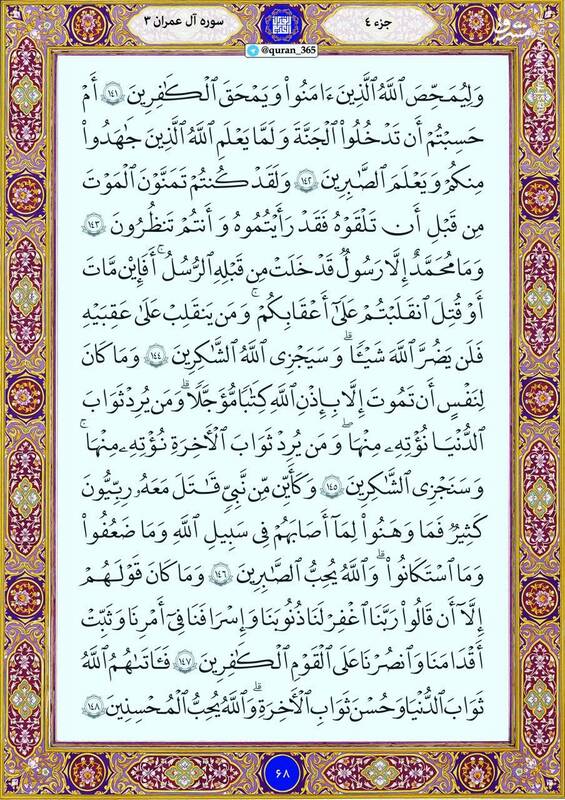 سوره آل عمران ٣
جزء ٤
@quran_365
وَلِيُمَحِّصَ ٱللَّهُ ٱلَّذِينَ ءَامَنُوا۟ وَيَمْحَقَ ٱلْكَـٰفِرِينَ ١٤١ أَمْ
حَسِبْتُمْ أَن تَدْخُلُوا۟ ٱلْجَنَّةَ وَلَمَّا يَعْلَمِ ٱللَّهُ ٱلَّذِينَ جَـٰهَدُوا۟
مِنكُمْ وَيَعْلَمَ ٱلصَّـٰبِرِينَ ١٤٢ وَلَقَدْ كُنتُمْ تَمَنَّوْنَ ٱلْمَوْتَ
مِن قَبْلِ أَن تَلْقَوْهُ فَقَدْ رَأَيْتُمُوهُ وَأَنتُمْ تَنظُرُونَ ١٤٣
وَمَا مُحَمَّدٌ إِلَّا رَسُولٌ قَدْ خَلَتْ مِن قَبْلِهِ ٱلرُّسُلُ ۚ أَفَإِي۟ن مَّاتَ
أَوْ قُتِلَ ٱنقَلَبْتُمْ عَلَىٰٓ أَعْقَـٰبِكُمْ ۚ وَمَن يَنقَلِبْ عَلَىٰ عَقِبَيْهِ
فَلَن يَضُرَّ ٱللَّهَ شَيْـًٔا ۗ وَسَيَجْزِى ٱللَّهُ ٱلشَّـٰكِرِينَ ١٤٤ وَمَا كَانَ
لِنَفْسٍ أَن تَمُوتَ إِلَّا بِإِذْنِ ٱللَّهِ كِتَـٰبًا مُّؤَجَّلًا ۗ وَمَن يُرِدْ ثَوَابَ
ٱلدُّنْيَا نُؤْتِهِۦ مِنْهَا ۖ وَمَن يُرِدْ ثَوَابَ ٱلْـَٔاخِرَةِ نُؤْتِهِۦ مِنْهَا ۚ
وَسَنَجْزِى ٱلشَّـٰكِرِينَ ١٤٥ وَكَأَيِّن مِّن نَّبِىٍّ قَـٰتَلَ مَعَهُۥ رِبِّيُّونَ
كَثِيرٌ فَمَا وَهَنُوا۟ لِمَآ أَصَابَهُمْ فِى سَبِيلِ ٱللَّهِ وَمَا ضَعُفُوا۟
وَمَا ٱسْتَكَانُوا۟ ۗ وَٱللَّهُ يُحِبُّ ٱلصَّـٰبِرِينَ ١٤٦ وَمَا كَانَ قَوْلَهُمْ
إِلَّآ أَن قَالُوا۟ رَبَّنَا ٱغْفِرْ لَنَا ذُنُوبَنَا وَإِسْرَافَنَا فِىٓ أَمْرِنَا وَثَبِّتْ
أَقْدَامَنَا وَٱنصُرْنَا عَلَى ٱلْقَوْمِ ٱلْكَـٰفِرِينَ ١٤٧ فَـَٔاتَىٰهُمُ ٱللَّهُ
ثَوَابَ ٱلدُّنْيَا وَحُسْنَ ثَوَابِ ٱلْـَٔاخِرَةِ ۗ وَٱللَّهُ يُحِبُّ ٱلْمُحْسِنِينَ ١٤٨
٦٨